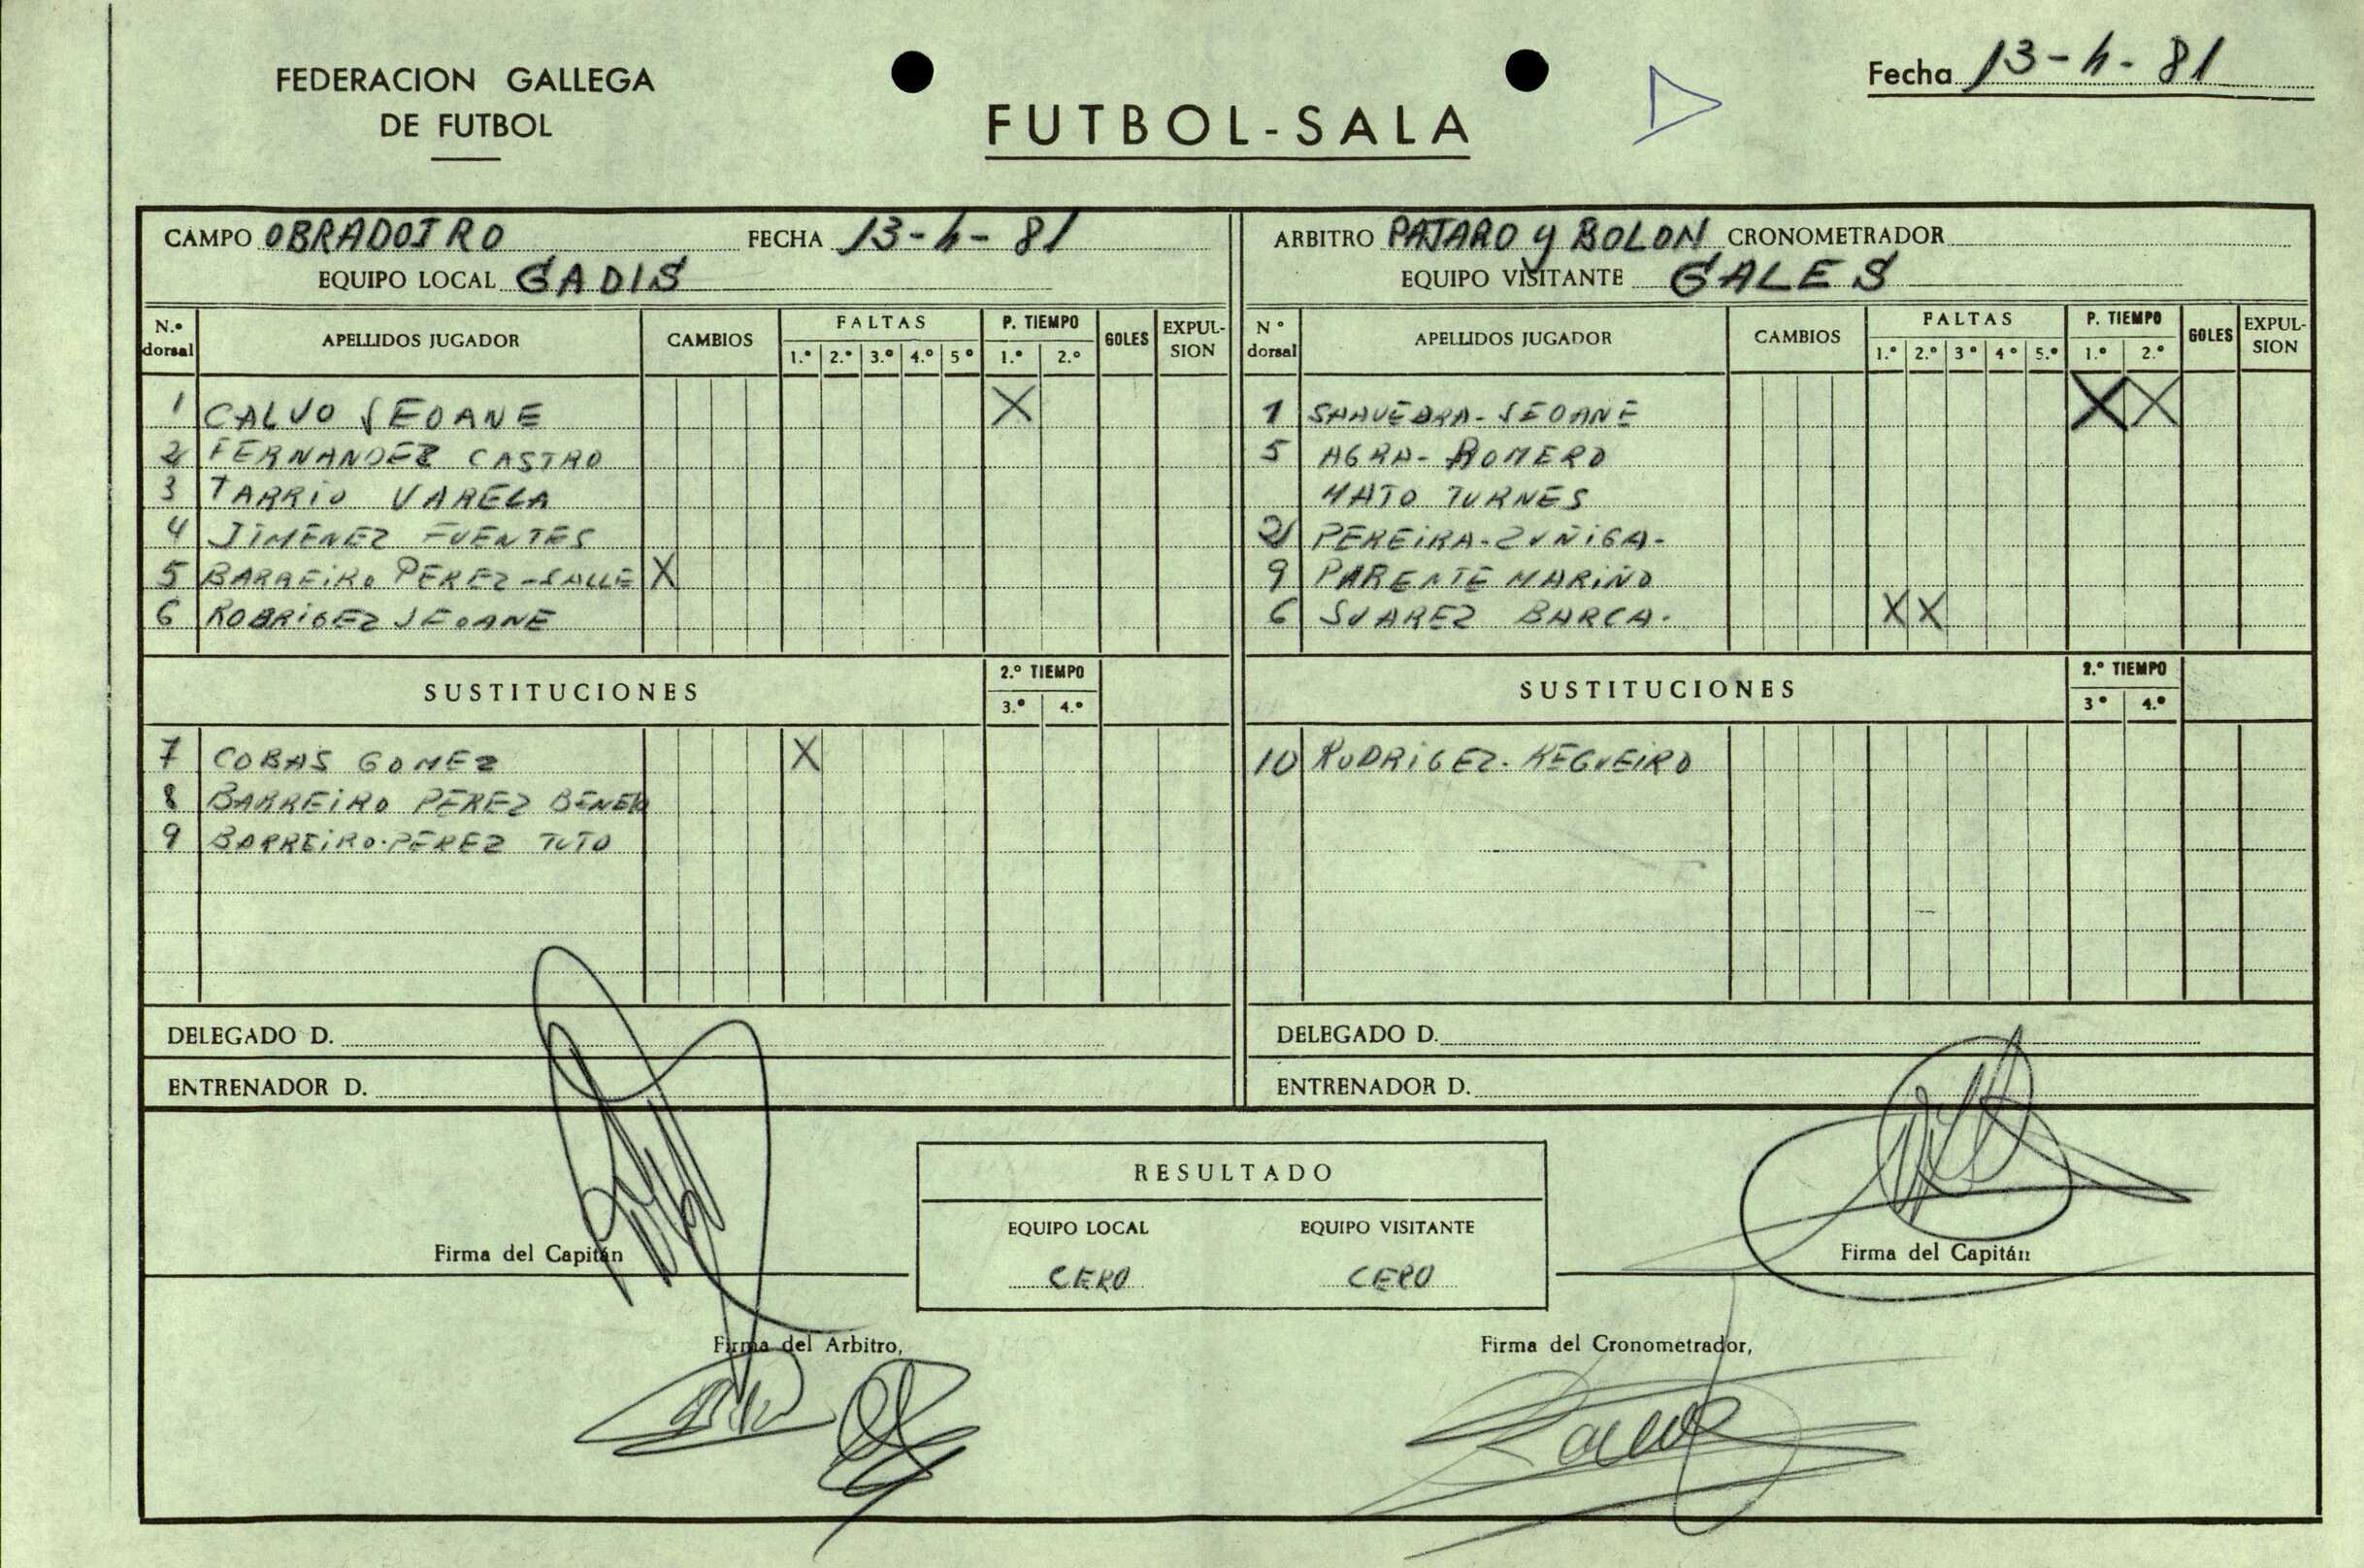 FEDERACION GALLEGA
DE FUTBOL
FUTBOL-SALA
Fecha 13-4-81
CAMPO OBRADOIRO FECHA 13-4-81
EQUIPO LOCAL GADIS
N.º dorsal APELLIDOS JUGADOR CAMBIOS FALTAS 1.º 2.º 3.º 4.º 5º P. TIEMPO 1.º 2.º GOLES EXPUL-SION
1 CALVO SEOANE X
2 FERNANDEZ CASTRO
3 TARRIO VARELA
4 JIMENEZ FUENTES
5 BARREIRO PEREZ-SALLE X
6 RODRIGEZ SEOANE
SUSTITUCIONES 2.º TIEMPO 3.º 4.º
7 COBAS GOMEZ X
8 BARREIRO PEREZ
9 BARREIRO-PEREZ TUTO
DELEGADO D.
ENTRENADOR D.
ARBITRO PAJARO y BOLON CRONOMETRADOR
EQUIPO VISITANTE GALES
Nº dorsal APELLIDOS JUGADOR CAMBIOS FALTAS 1.º 2.º 3º 4º 5.º P. TIEMPO 1.º 2.º GOLES EXPUL-SION
1 SEOANE X X
5 AGRA-ROMERO
MATO TURNES
2 PEREIRA-ZUÑIGA-
9 PARENTE MARIÑO
6 SUAREZ BARCA. X X
SUSTITUCIONES 2.º TIEMPO 3º 4.º
10 RODRIGEZ-REGUEIRO
DELEGADO D.
ENTRENADOR D.
Firma del Capitán
RESULTADO
EQUIPO LOCAL EQUIPO VISITANTE
CERO CERO
Firma del Capitán
Firma del Arbitro,
Firma del Cronometrador,